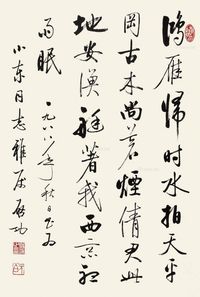 鸿雁归时水拍天平
冈古木尚苍烟倩君此
地安渔艇著我西窗听
雨眠
一九八八年秋日书为
小东同志雅属 启功